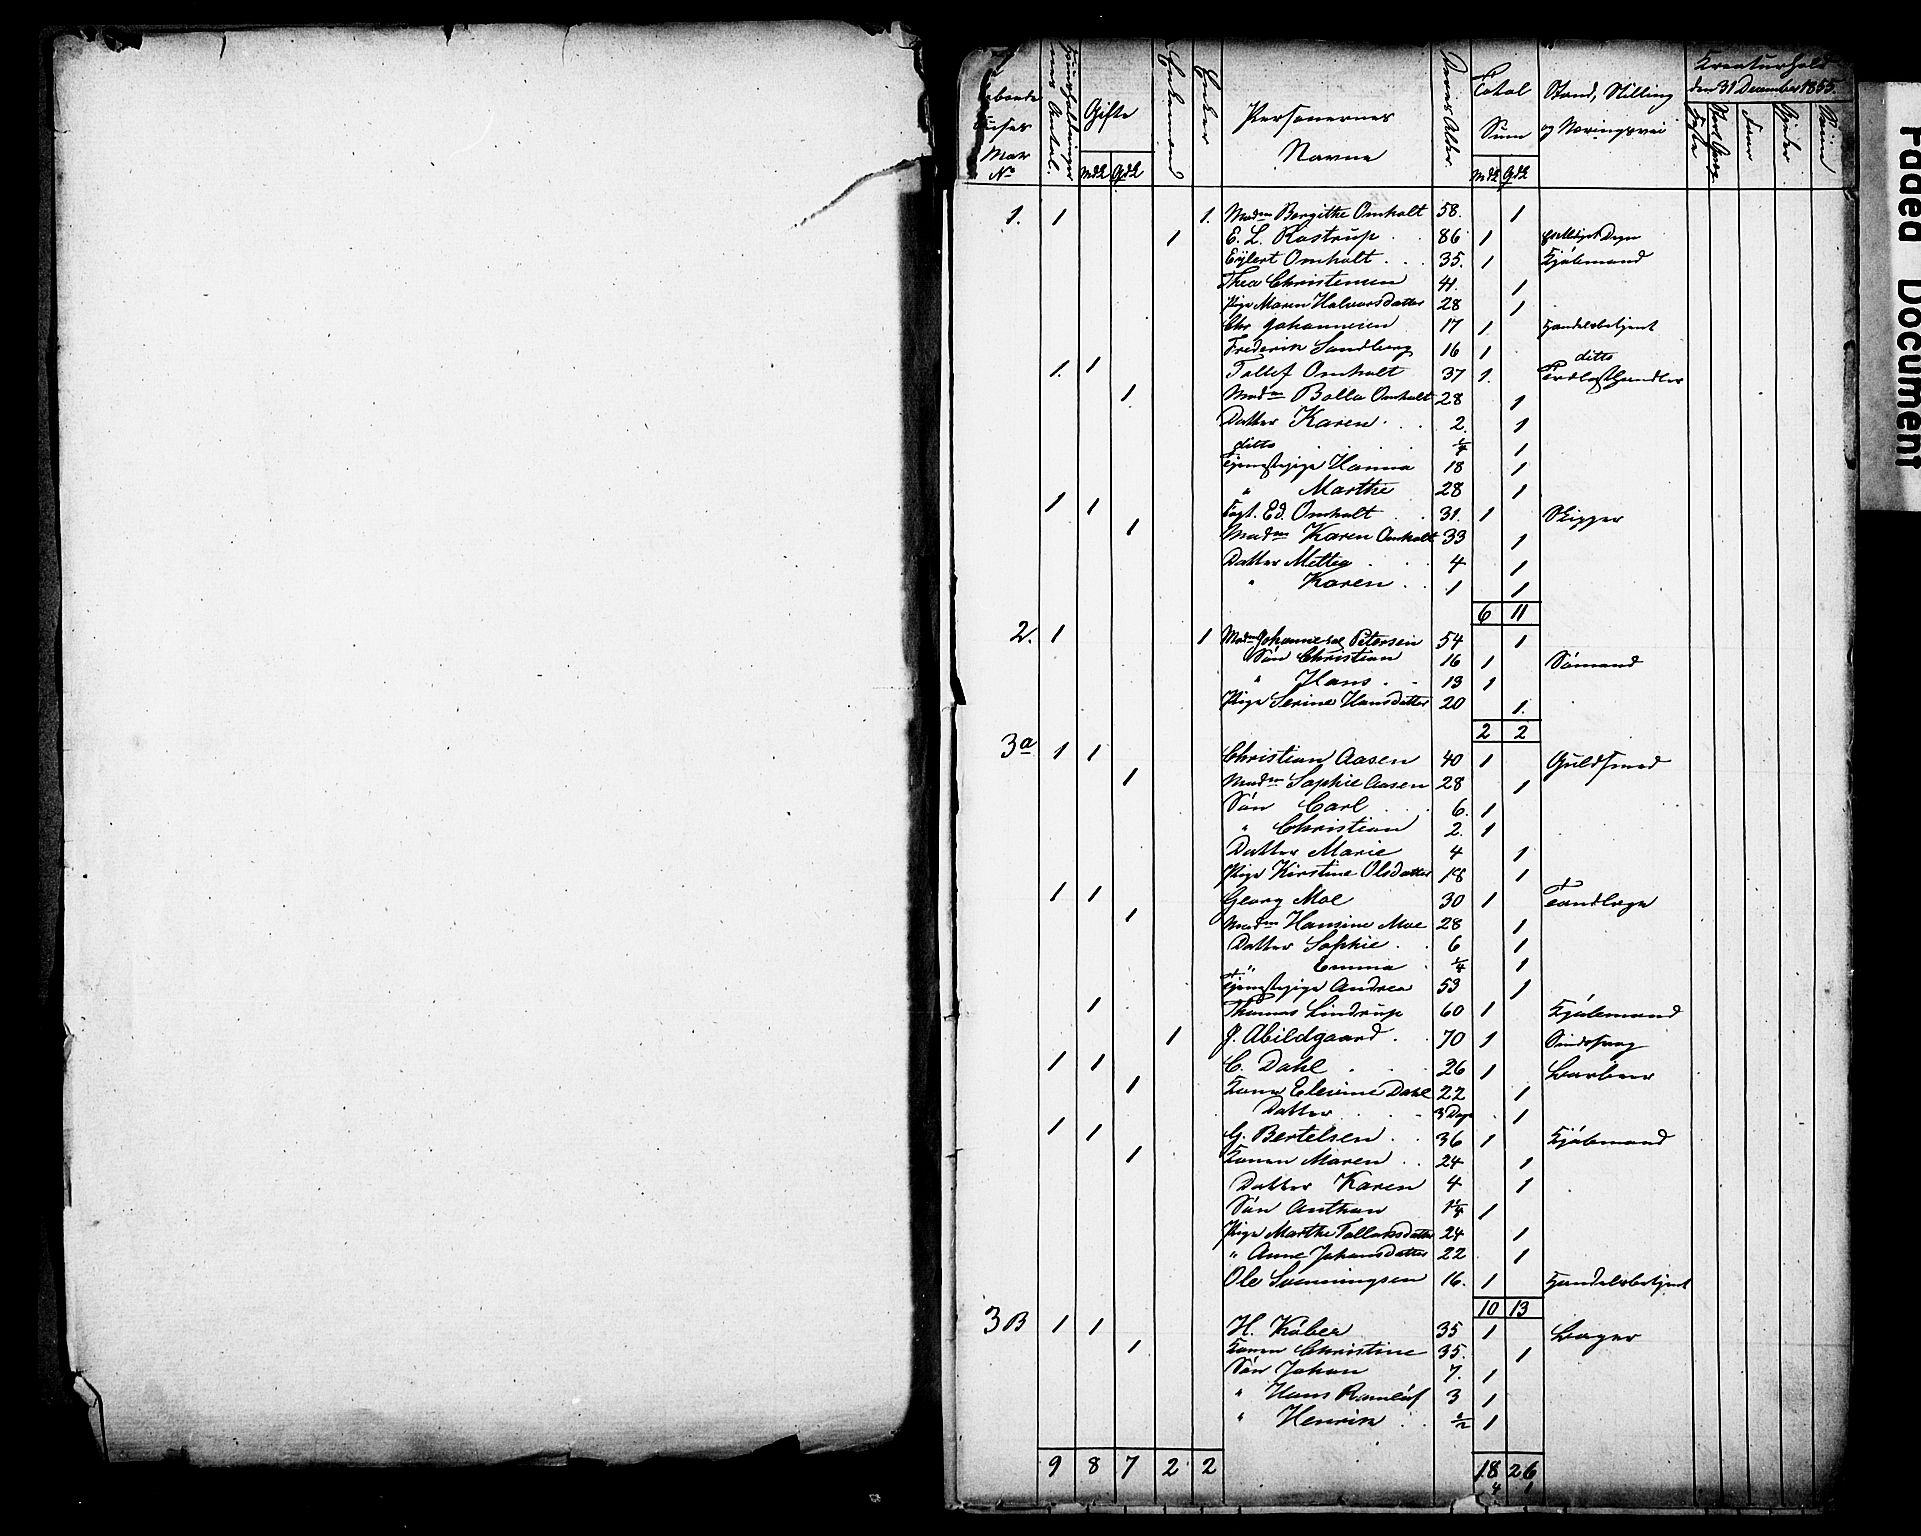 Faded Document
Huusholdninger
nes Antal.
Gifte
Mdk Qdk
Enkemænd
Enker
Personernes
Navne
Deres Alder.
Total
Sum
Mdk Qdk
Stand, Stilling
og Næringsvei
Kreaturhold
den 31 December 1855.
Heste
Faar
Gjeder
Sviin
Matr
No
1. 1 1. Madm Bergithe Omholt 58. 1
1 E. L. Rostrup 86 1
Eylert Omholt 35. 1 Kjöbmand
Thea Christensen 41. 1
Pige Maren Halvorsdatter 28 1
Chr Johannesen 17 1 Handelsbetjent
Frederik Sandberg 16 1 ditto
1. 1 Tallef Omholt 37 1. Trælasthandler
1 Madm Bolla Omholt 28 1
Datter Karen 2. 1
ditto 1/4 1
Tjenestepige Hanna 18 1
" Marthe 28 1
1 1 Capt. Ed. Omholt 31. 1 Skipper
1 Madm Karen Omholt 33 1
Datter Mettea 4 1
" Karen 1 1
6 11
2. 1 1 Madm Johanne sal Petersen 54 1
Sön Christian 16 1 Sömand
" Hans 13 1
Pige Serine Hansdatter 20 1.
2 2
3a 1 1 Christian Aasen 40 1 Guldsmed
1 Madm Sophie Aasen 28 1
Sön Carl 6. 1
" Christian 2. 1
Datter Marie 4 1
Pige Kirstine Olsdatter 18 1
1 1 Georg Moe 30 1 Tandlæge
1 Madm Hansine Moe 28 1
Datter Sophie 6 1
" Emma 1/4 1
Tjenestepige Andrea 53 1
1 Thomas Lindrup 60 1 Kjöbmand
1 J. Abildgaard 70 1
1 1 C. Dahl 26 1 Barbeer
1 Kone Elesine Dahl 22 1
Datter 3 Dage 1
1 1 G. Bertelsen 36 1 Kjöbmand
1 Konen Maren 24 1
Datter Karen 4 1
Sön Anthon 1 1/4 1
Pige Marthe Tallaksdatter 24 1
" Anne Johansdatter 22 1
Ole Svenningsen 16. 1 Handelsbetjent
10 13
3B 1 1 H. Köber 35 1 Bager
1 Konen Christine 35. 1
Sön Johan 7. 1
" Hans Ramlöf 3 1
" Henrik 1/2 1
9 8 7 2 2 18 26
4 1